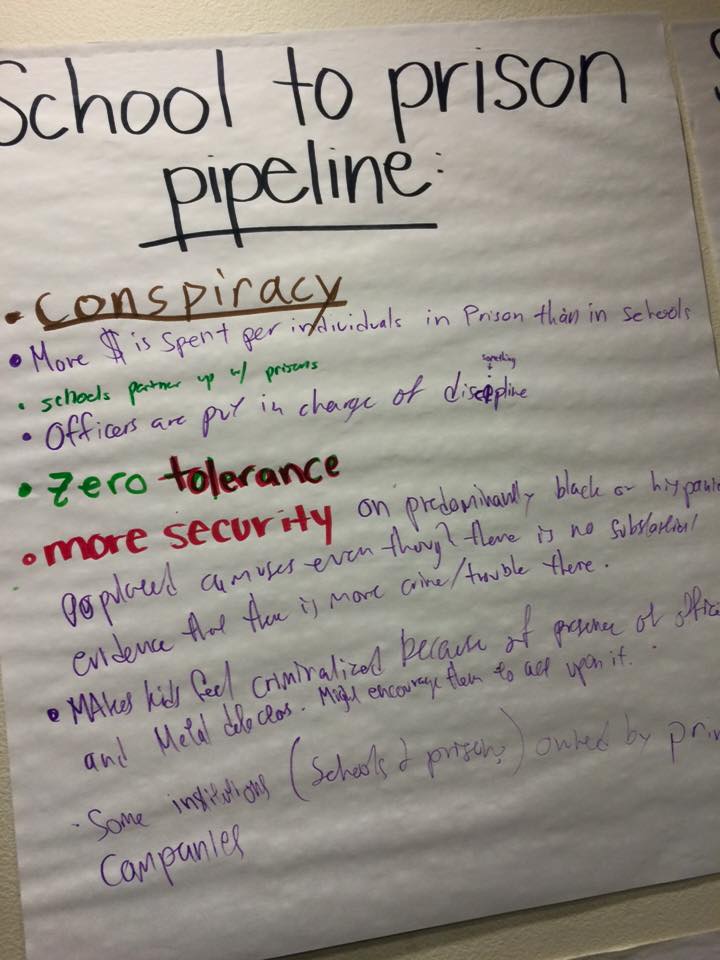 School to prison
pipeline:
• Conspiracy
• More $ is spent per individuals in Prison than in schools
• schools partner up w/ prisons
something
• Officers are put in charge of discipline
• Zero tolerance
• more security on predominantly black or hispanic
populated camuses even though there is no substantial
evidence that there is more crime/trouble there.
• MAKes kids feel criminalized because of presence of office
and Metal detectos. Might encourage them to act upon it.
· Some institutions (Schools & prisons) owned by priv
Companies
S